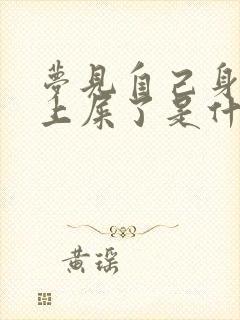 夢見自己身
上屎了是什
黄瑶